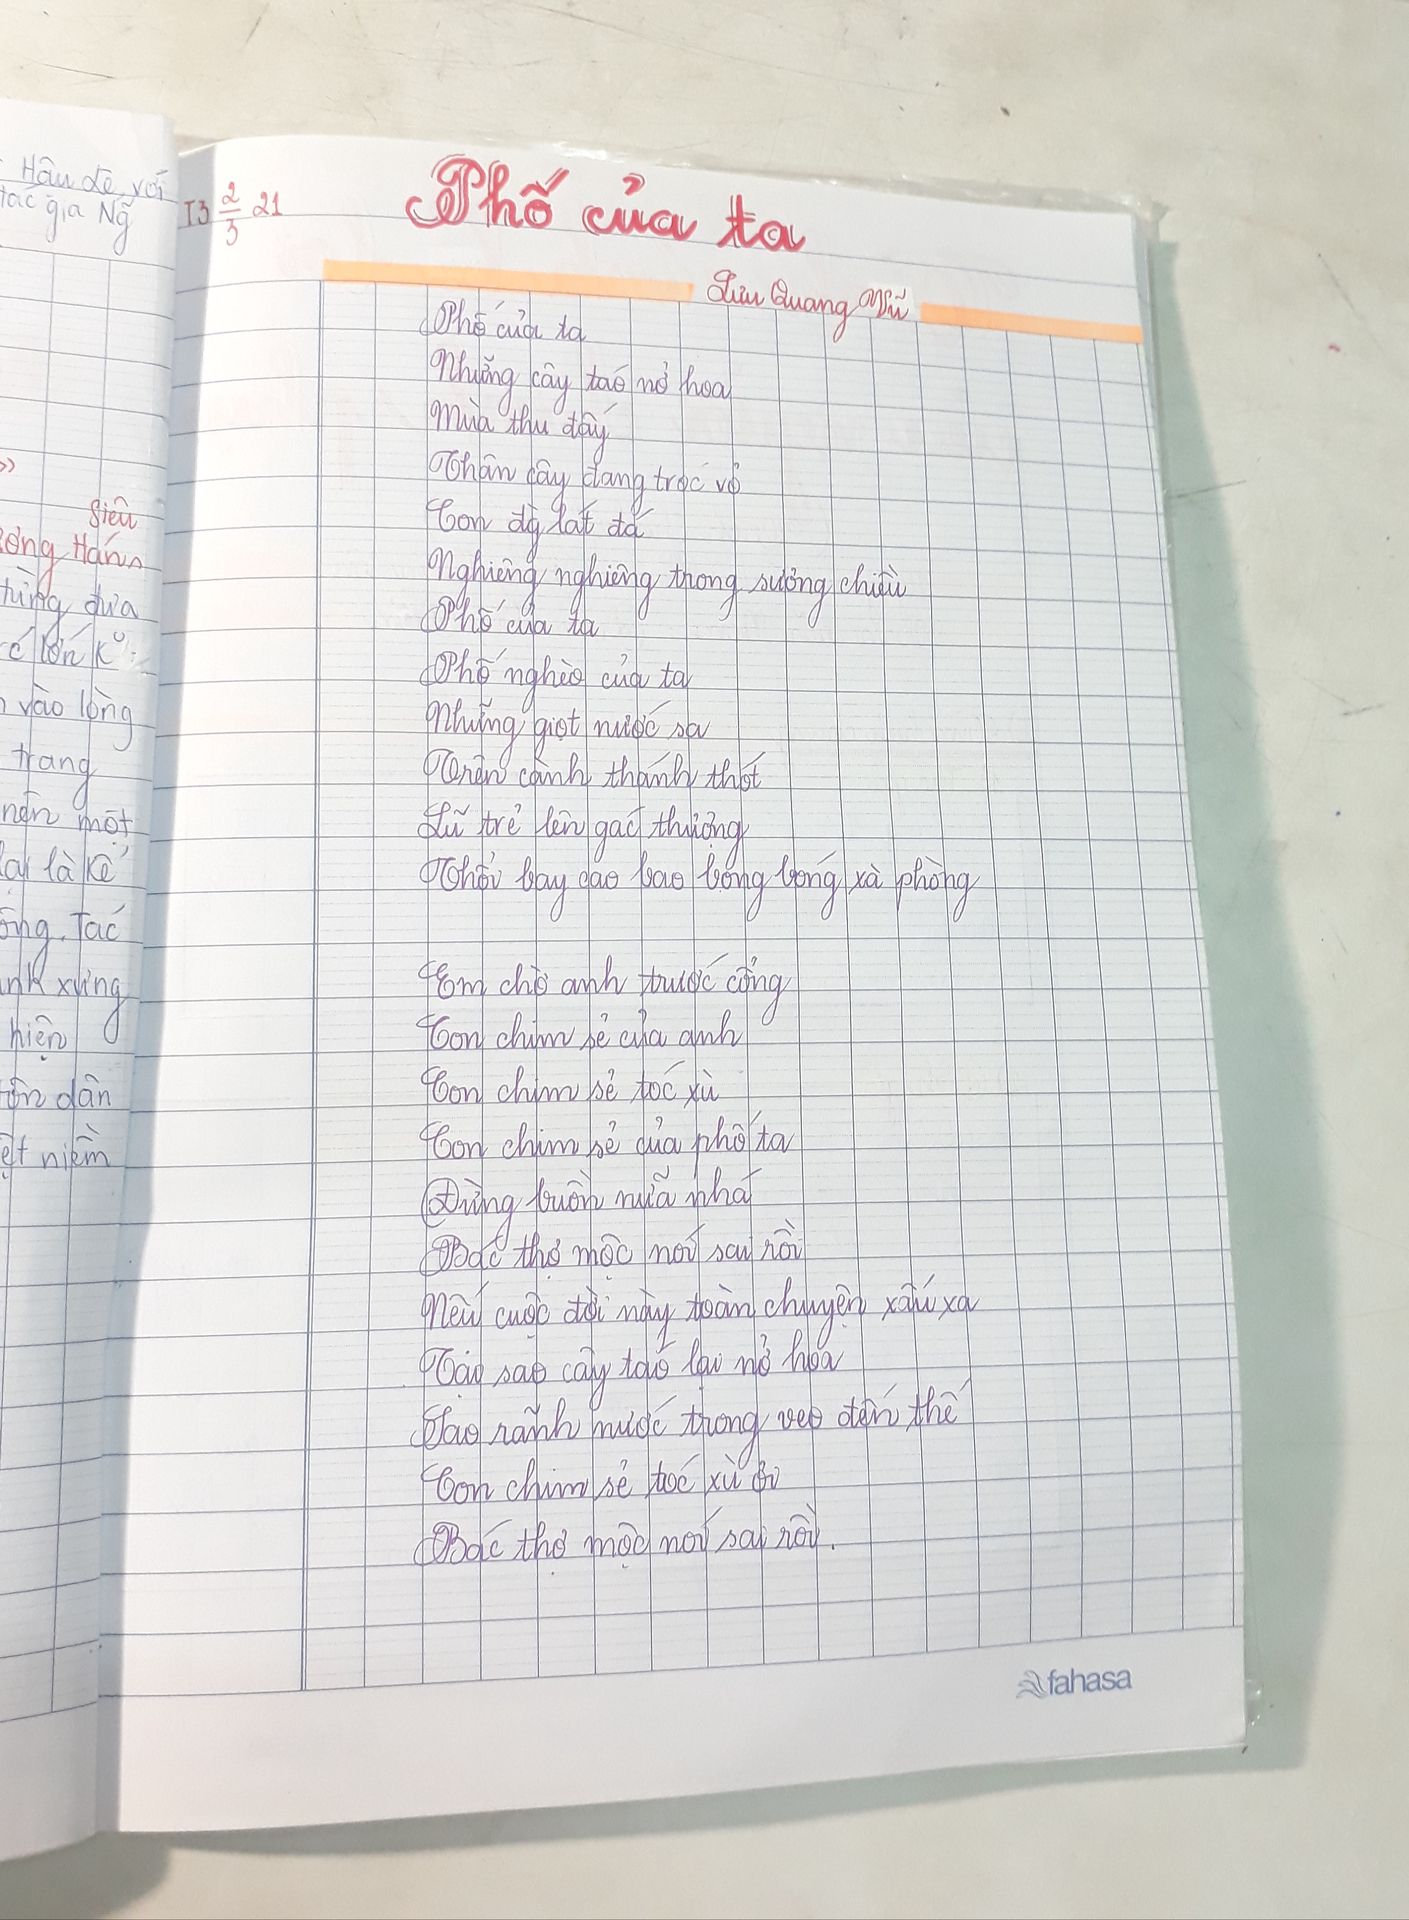 Hậu Lê với
tác giả Ng
Siêu
ơng Hán
từng đưa
vào lòng
trang
nên một
lại là kẻ
ông. Tác
xưng
hiện
dân
niềm
T3 2/3 21
Phố của ta
Lưu Quang Vũ
Phố của ta
Những cây táo nở hoa
Mùa thu đấy
Thân cây đang tróc vỏ
Con đg lát đá
Nghiêng nghiêng trong sương chiều
Phố của ta
Phố nghèo của ta
Những giọt nước sa
Trên cành thánh thót
Lũ trẻ lên gác thượng
Thổi bay cao bao bong bóng xà phòng
Em chờ anh trước cổng
Con chim sẻ của anh
Con chim sẻ tóc xù
Con chim sẻ của phố ta
Đừng buồn nữa nhá
Bác thợ mộc nói sai rồi
Nếu cuộc đời này toàn chuyện xấu xa
Tại sao cây táo lại nở hoa
Sao rãnh nước trong veo đến thế
Con chim sẻ tóc xù ơi
Bác thợ mộc nói sai rồi.
fahasa